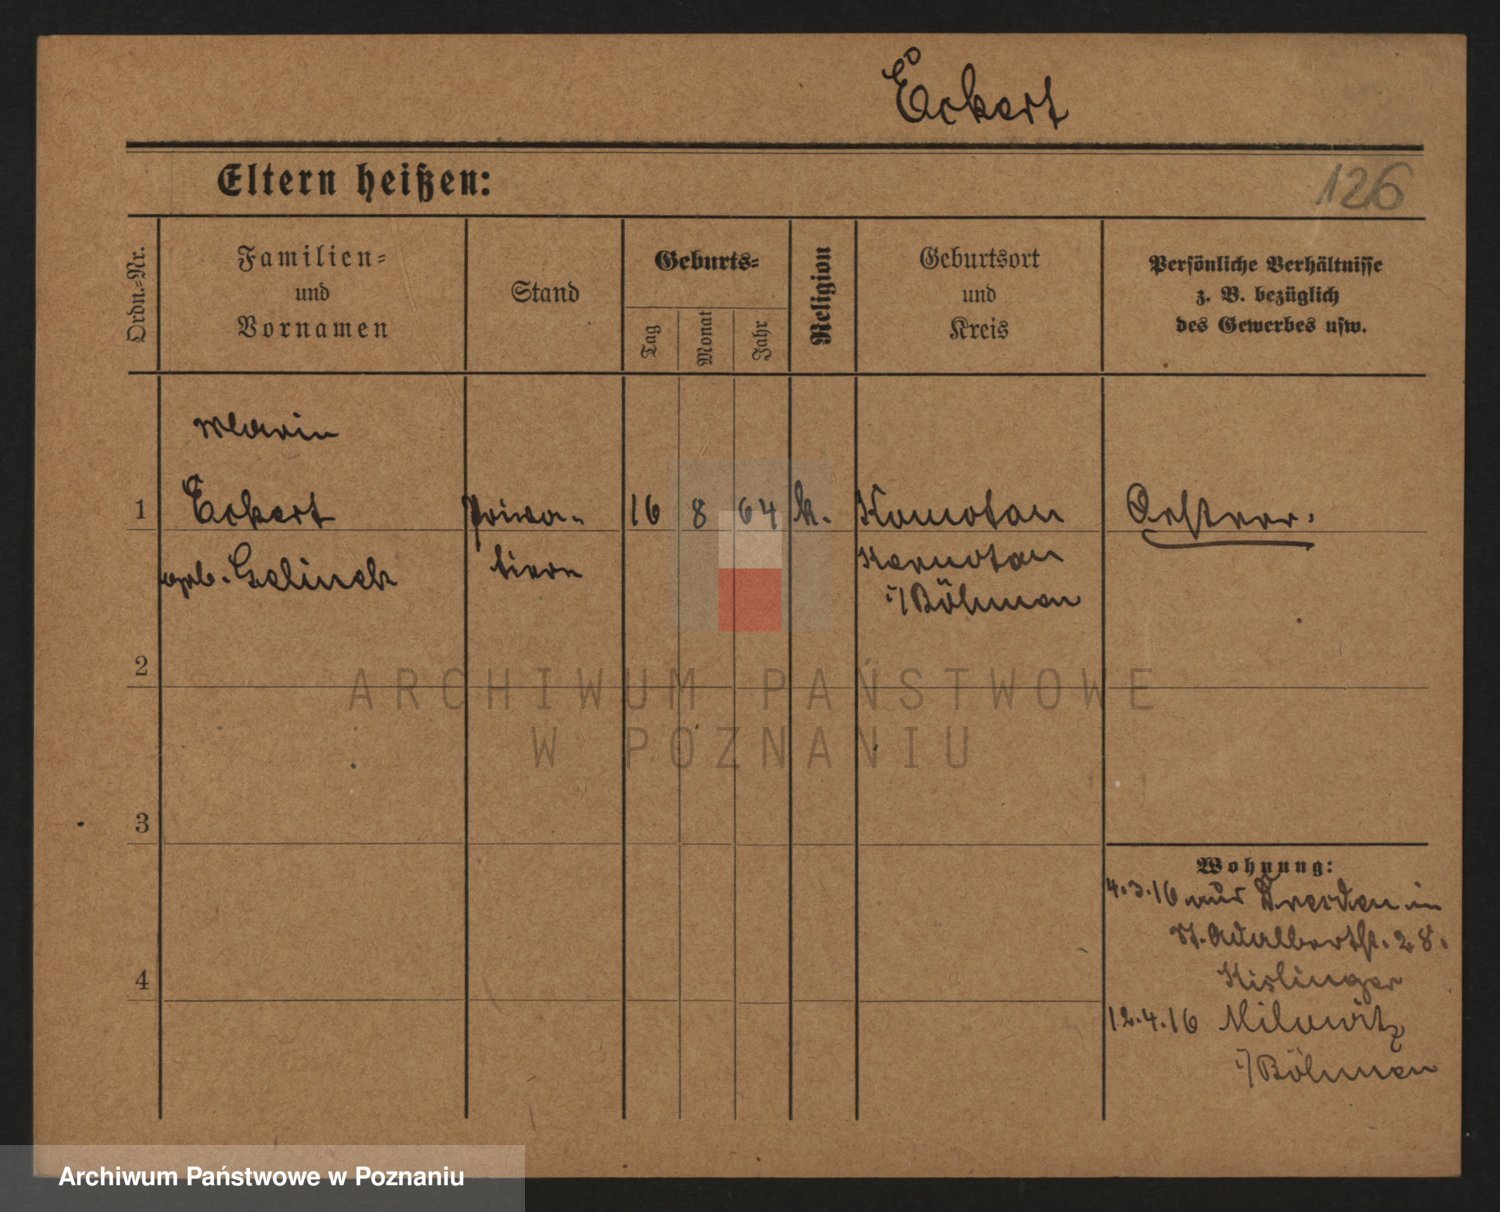 Eckert
126
Eltern heißen:
Ordn.-Nr.
Familien-
und
Vornamen
Stand
Geburts-
Tag
Monat
Jahr
Religion
Geburtsort
und
Kreis
Persönliche Verhältnisse
z. B. bezüglich
des Gewerbes usw.
Marie
1 Eckert Priva- 16 8 64 k. Komotau Oesterr.
geb. Gelinek tiere Komotau
i/Böhmen
2
3
4
Wohnung:
4.3.16 aus Dresden in
St. Adalbertst. 28.
Kislinger
12.4.16 Milowitz
i/Böhmen
ARCHIWUM PAŃSTWOWE
W POZNANIU
Archiwum Państwowe w Poznaniu